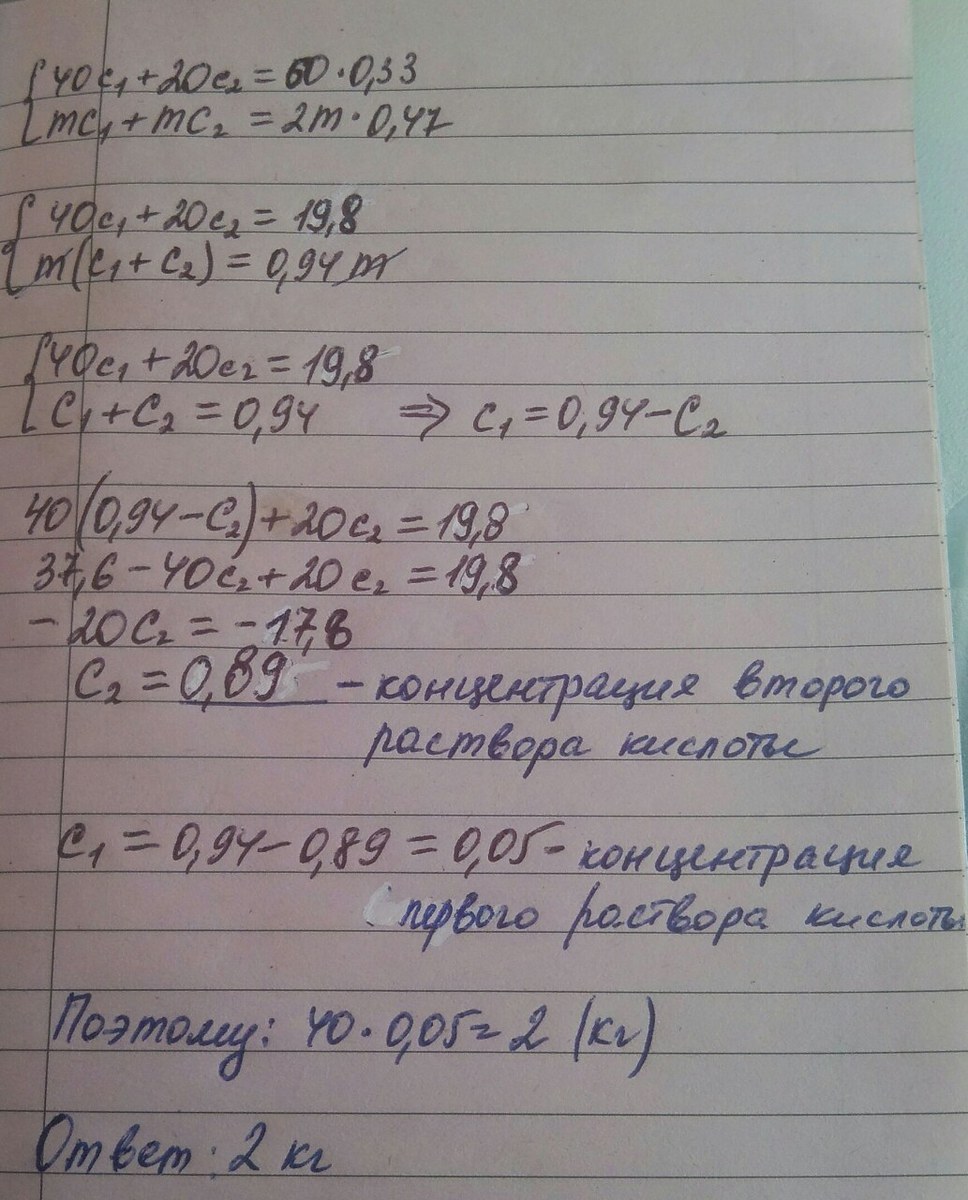 {40c₁+20c₂=60·0,33
{mc₁+mc₂=2m·0,47
{40c₁+20c₂=19,8
{m(c₁+c₂)=0,94m
{40c₁+20c₂=19,8
{c₁+c₂=0,94 ⇒ c₁=0,94-c₂
40(0,94-c₂)+20c₂=19,8
37,6-40c₂+20c₂=19,8
-20c₂=-17,8
c₂=0,89 - концентрация второго
раствора кислоты
c₁=0,94-0,89=0,05- концентрация
первого раствора кислоты
Поэтому: 40·0,05=2 (кг)
Ответ: 2 кг